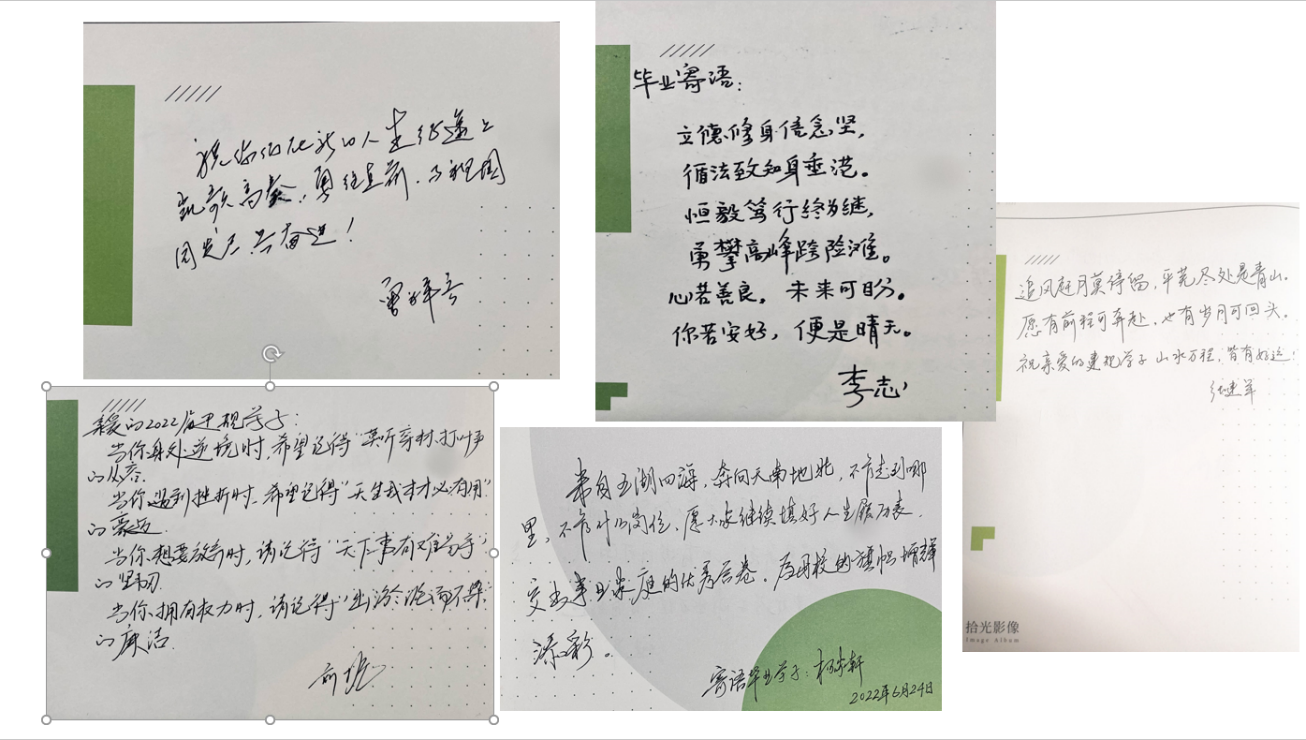 祝你们在新的人生征途上
凯歌高奏，勇往直前，与祖国
同发展 共奋进！
毕业寄语：
立德修身信念坚，
循法致知身垂范。
恒毅笃行终为继，
勇攀高峰跨险滩。
心若善良，未来可盼。
你若安好，便是晴天。
李志
追风赶月莫停留，平芜尽处是青山。
愿有前程可奔赴，也有岁月可回头。
祝亲爱的建规学子 山水万程，皆有好运！
亲爱的2022届建规学子：
当你身处逆境时，希望记得“莫听穿林打叶声”
的从容.
当你遇到挫折时，希望记得“天生我才必有用”
的豪迈.
当你想要放弃时，请记得“天下事有难易乎”
的坚韧.
当你拥有权力时，请记得“出淤泥而不染”
的廉洁.
来自五湖四海，奔向天南地北，不管走到哪
里，不管什么岗位，愿大家继续填好人生履历表，
交出事业家庭的优秀答卷，为母校的旗帜增辉
添彩。
寄语毕业学子：
2022年6月24日
拾光影像
Image Album